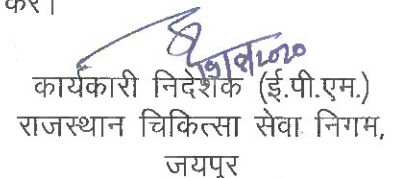 करे।
कार्यकारी निदेशक (ई.पी.एम.)
राजस्थान चिकित्सा सेवा निगम,
जयपुर